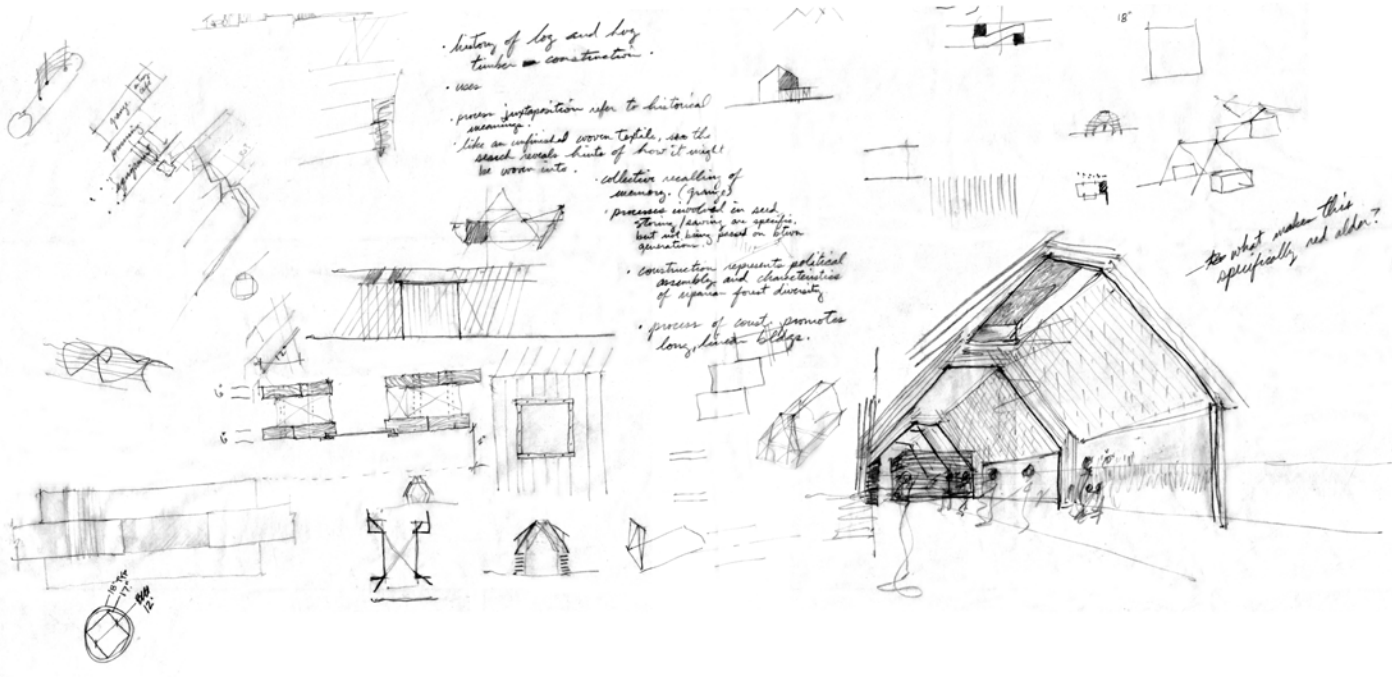 18"
· history of log and hog
timber construction.
· uses
· process juxtaposition refer to historical
meanings.
· like an unfinished woven textile, see the
search reveals hints of how it might
be woven into.
· collective recalling of
memory. (grange)
· processes involved in seed
storing/saving are specific,
but not being passed on btwn
generation.
· construction represents political
assembly and characteristics
of riparian forest diversity
· process of const. promotes
long, linear bldgs.
what makes this
specifically red alder?
grange
12"
6"
6"
18"
17"
12"